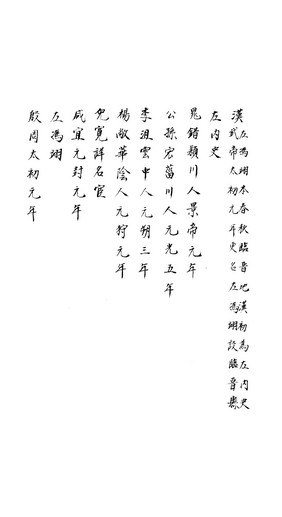 左馮翊本春秋臨晉地漢初為左內史
漢武帝太初元年更名左馮翊設臨晉縣
左內史
晁錯潁川人景帝元年
公孫宏菑川人元光五年
李沮雲中人元朔三年
楊敞華陰人元狩元年
兒寬詳名宦
咸宣元封元年
左馮翊
殷周太初元年